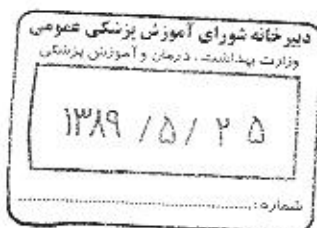 دبیرخانه شورای آموزش پزشکی عمومی
وزارت بهداشت، درمان و آموزش پزشکی
۱۳۸۹ /۵/ ۲۵
شماره: